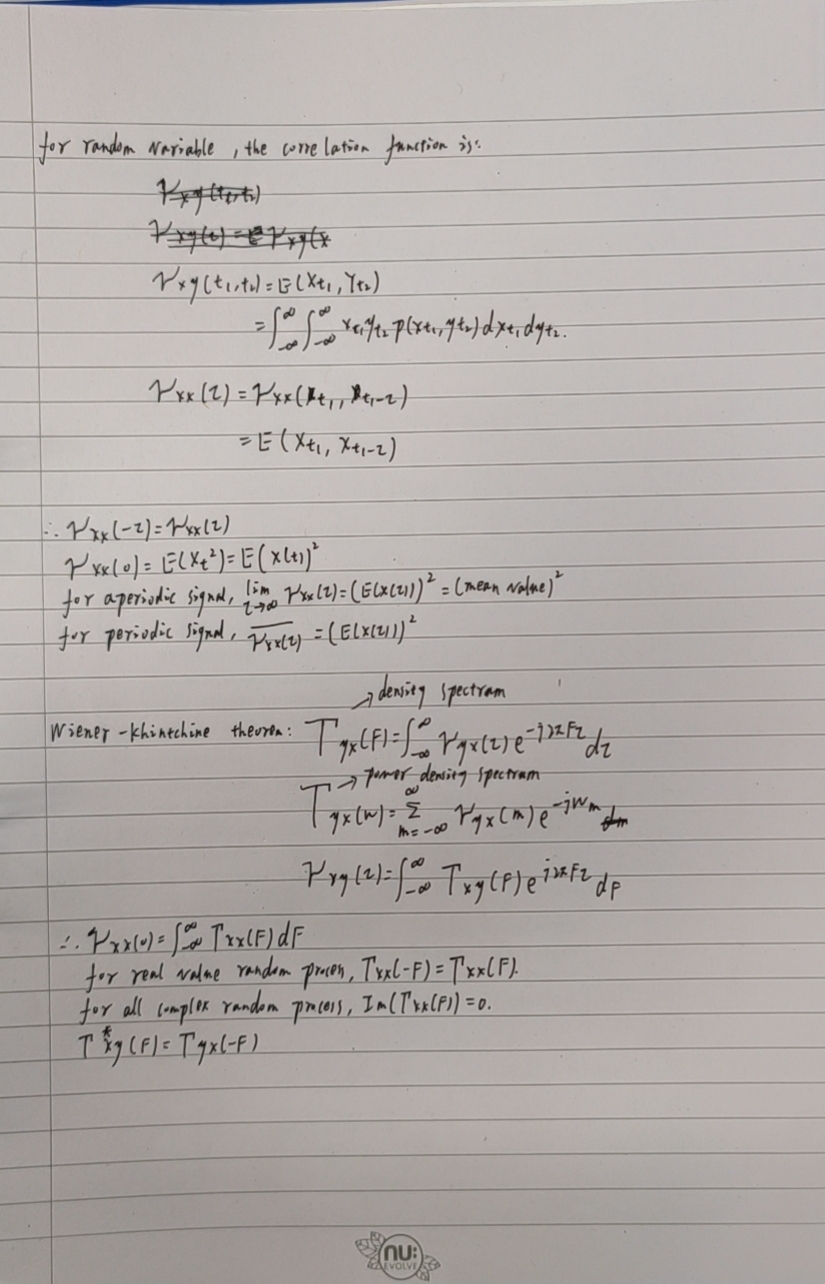 for random variable, the correlation function is:
γxy(t1,t2)
γxy(τ) = E γxy(x
γxy(t1,t2) = E(Xt1, Yt2)
= ∫_{-∞}^{∞} ∫_{-∞}^{∞} xt1 yt2 p(xt1, yt2) dxt1 dyt2.
γxx(τ) = γxx(t1, t1-τ)
= E(Xt1, Xt1-τ)
∴ γxx(-τ) = γxx(τ)
γxx(0) = E(Xt²) = E(x(t))²
for aperiodic signal, lim_{τ→∞} γxx(τ) = (E(x(τ)))² = (mean value)²
for periodic signal, \overline{γxx(τ)} = (E(x(τ)))²
→ density spectram
Wiener-Khintchine theorem: Γyx(F) = ∫_{-∞}^{∞} γyx(τ) e^{-j2πFτ} dτ
→ power density spectram
Γyx(w) = Σ_{m=-∞}^{∞} γyx(m) e^{-jwm} dm
γxy(τ) = ∫_{-∞}^{∞} Γxy(F) e^{j2πFτ} dF
∴ γxx(0) = ∫_{-∞}^{∞} Γxx(F) dF
for real value random proces, Γxx(-F) = Γxx(F).
for all complex random process, Im(Γxx(F)) = 0.
Γ*xy(F) = Γyx(-F)
nu:
EVOLVE